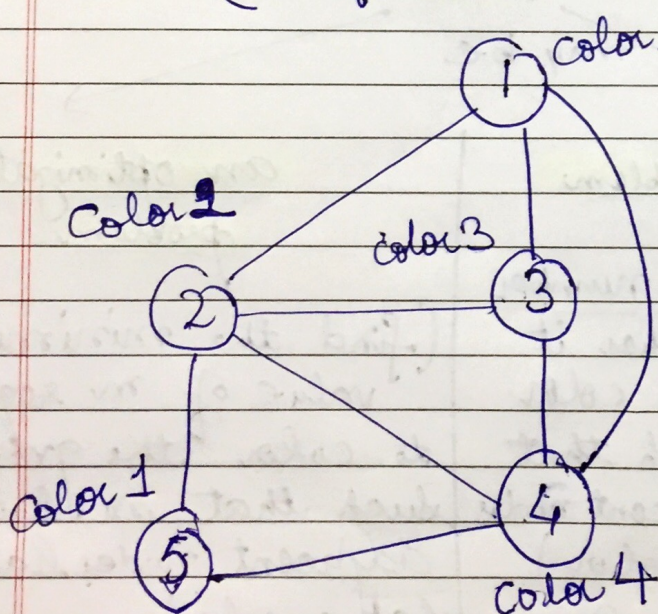 color
1
Color 2
color 3
2
3
Color 1
4
5
color 4